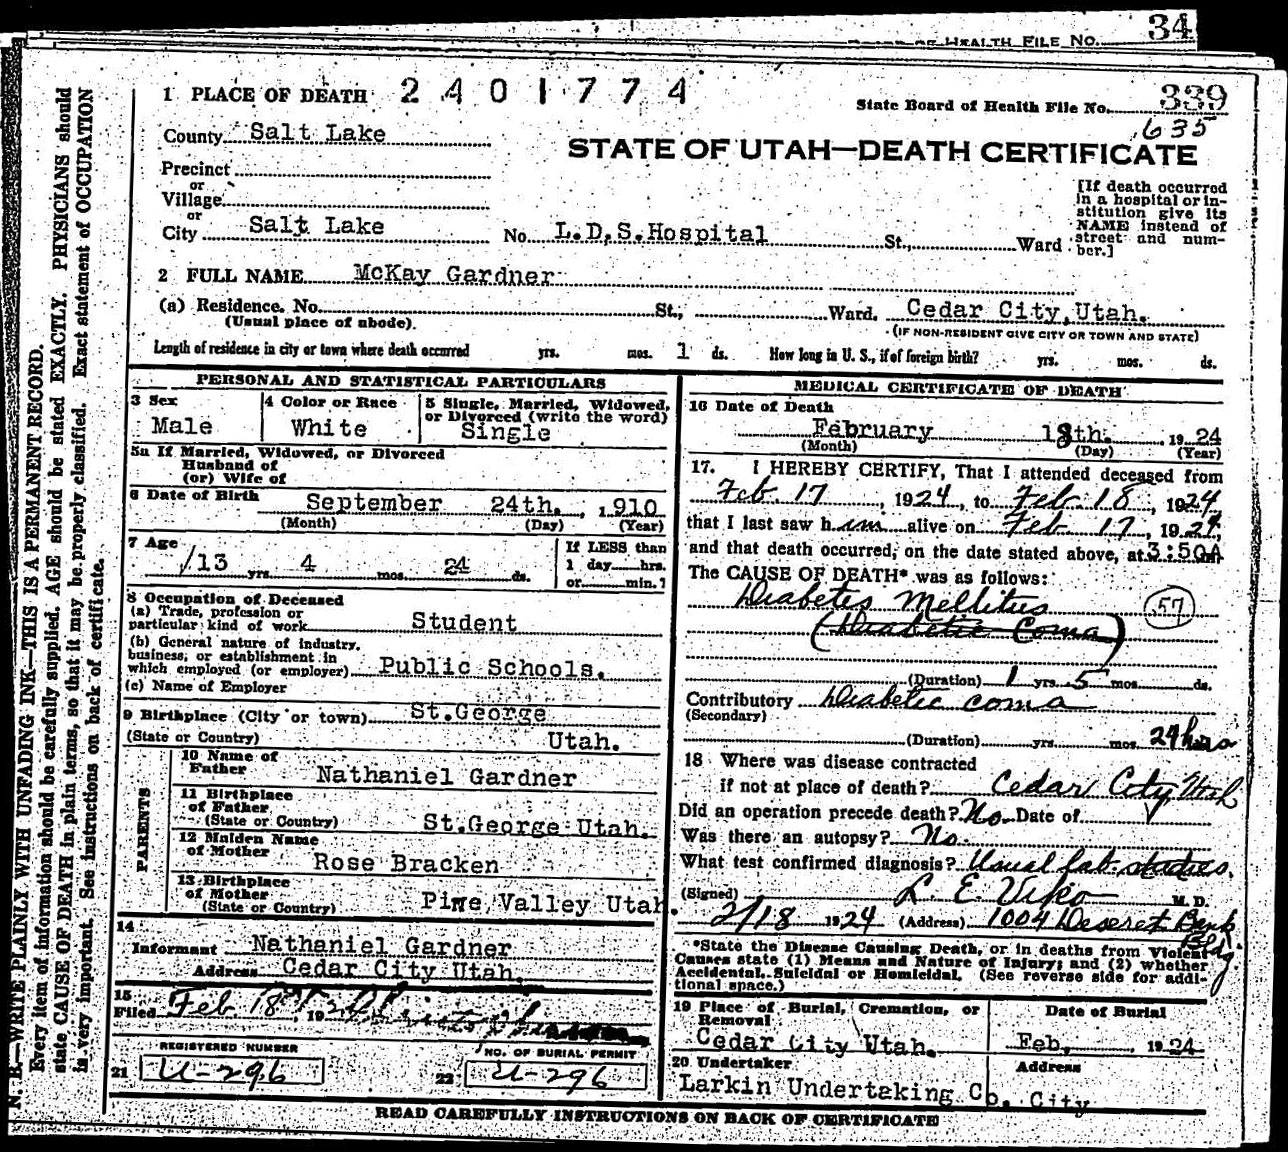 34
BOARD OF HEALTH FILE NO.
1 PLACE OF DEATH 2401774
State Board of Health File No. 339
635
County Salt Lake
STATE OF UTAH—DEATH CERTIFICATE
Precinct
or
Village
or
City Salt Lake No. L.D.S.Hospital St., Ward
[If death occurred
in a hospital or in-
stitution give its
NAME instead of
street and num-
ber.]
2 FULL NAME McKay Gardner
(a) Residence. No. St., Ward. Cedar City, Utah.
(Usual place of abode) (IF NON-RESIDENT GIVE CITY OR TOWN AND STATE)
Length of residence in city or town where death occurred yrs. mos. 1 ds. How long in U. S., if of foreign birth? yrs. mos. ds.
PERSONAL AND STATISTICAL PARTICULARS
3 Sex
Male
4 Color or Race
White
5 Single, Married, Widowed,
or Divorced (write the word)
Single
5a If Married, Widowed, or Divorced
Husband of
(or) Wife of
6 Date of Birth September 24th. , 1910
(Month) (Day) (Year)
7 Age
13 yrs. 4 mos. 24 ds.
If LESS than
1 day hrs.
or min.?
8 Occupation of Deceased
(a) Trade, profession or
particular kind of work Student
(b) General nature of industry,
business, or establishment in
which employed (or employer) Public Schools.
(c) Name of Employer
9 Birthplace (City or town) St.George
(State or Country) Utah.
PARENTS
10 Name of
Father Nathaniel Gardner
11 Birthplace
of Father
(State or Country) St.George Utah.
12 Maiden Name
of Mother Rose Bracken
13 Birthplace
of Mother
(State or Country) Pine Valley Utah
14
Informant Nathaniel Gardner
Address Cedar City Utah.
15
Filed Feb 18 , 19
REGISTERED NUMBER
21 U-296
NO. OF BURIAL PERMIT
22 U-296
MEDICAL CERTIFICATE OF DEATH
16 Date of Death
February 18th. , 1924
(Month) (Day) (Year)
17. I HEREBY CERTIFY, That I attended deceased from
Feb. 17 , 1924, to Feb. 18 , 1924
that I last saw him alive on Feb 17 , 1924,
and that death occurred, on the date stated above, at 3:50A m
The CAUSE OF DEATH* was as follows:
Diabetes Mellitus 57
(Diabetic Coma)
(Duration) 1 yrs. 5 mos. ds.
Contributory Diabetic coma
(Secondary)
(Duration) yrs. mos. 24 hrs
18 Where was disease contracted
if not at place of death? Cedar City Utah
Did an operation precede death? No. Date of
Was there an autopsy? No.
What test confirmed diagnosis? Usual lab. studies.
(Signed) L. E. Viko M. D.
2/18 1924 (Address) 1004 Deseret Bank
Bldg.
*State the Disease Causing Death, or in deaths from Violent
Causes state (1) Means and Nature of Injury; and (2) whether
Accidental, Suicidal or Homicidal. (See reverse side for addi-
tional space.)
19 Place of Burial, Cremation, or
Removal
Cedar City Utah.
Date of Burial
Feb. , 1924
20 Undertaker
Larkin Undertaking Co.
Address
City
READ CAREFULLY INSTRUCTIONS ON BACK OF CERTIFICATE
N. B.—WRITE PLAINLY WITH UNFADING INK—THIS IS A PERMANENT RECORD.
Every item of information should be carefully supplied. AGE should be stated EXACTLY. PHYSICIANS should
state CAUSE OF DEATH in plain terms, so that it may be properly classified. Exact statement of OCCUPATION
is very important. See instructions on back of certificate.